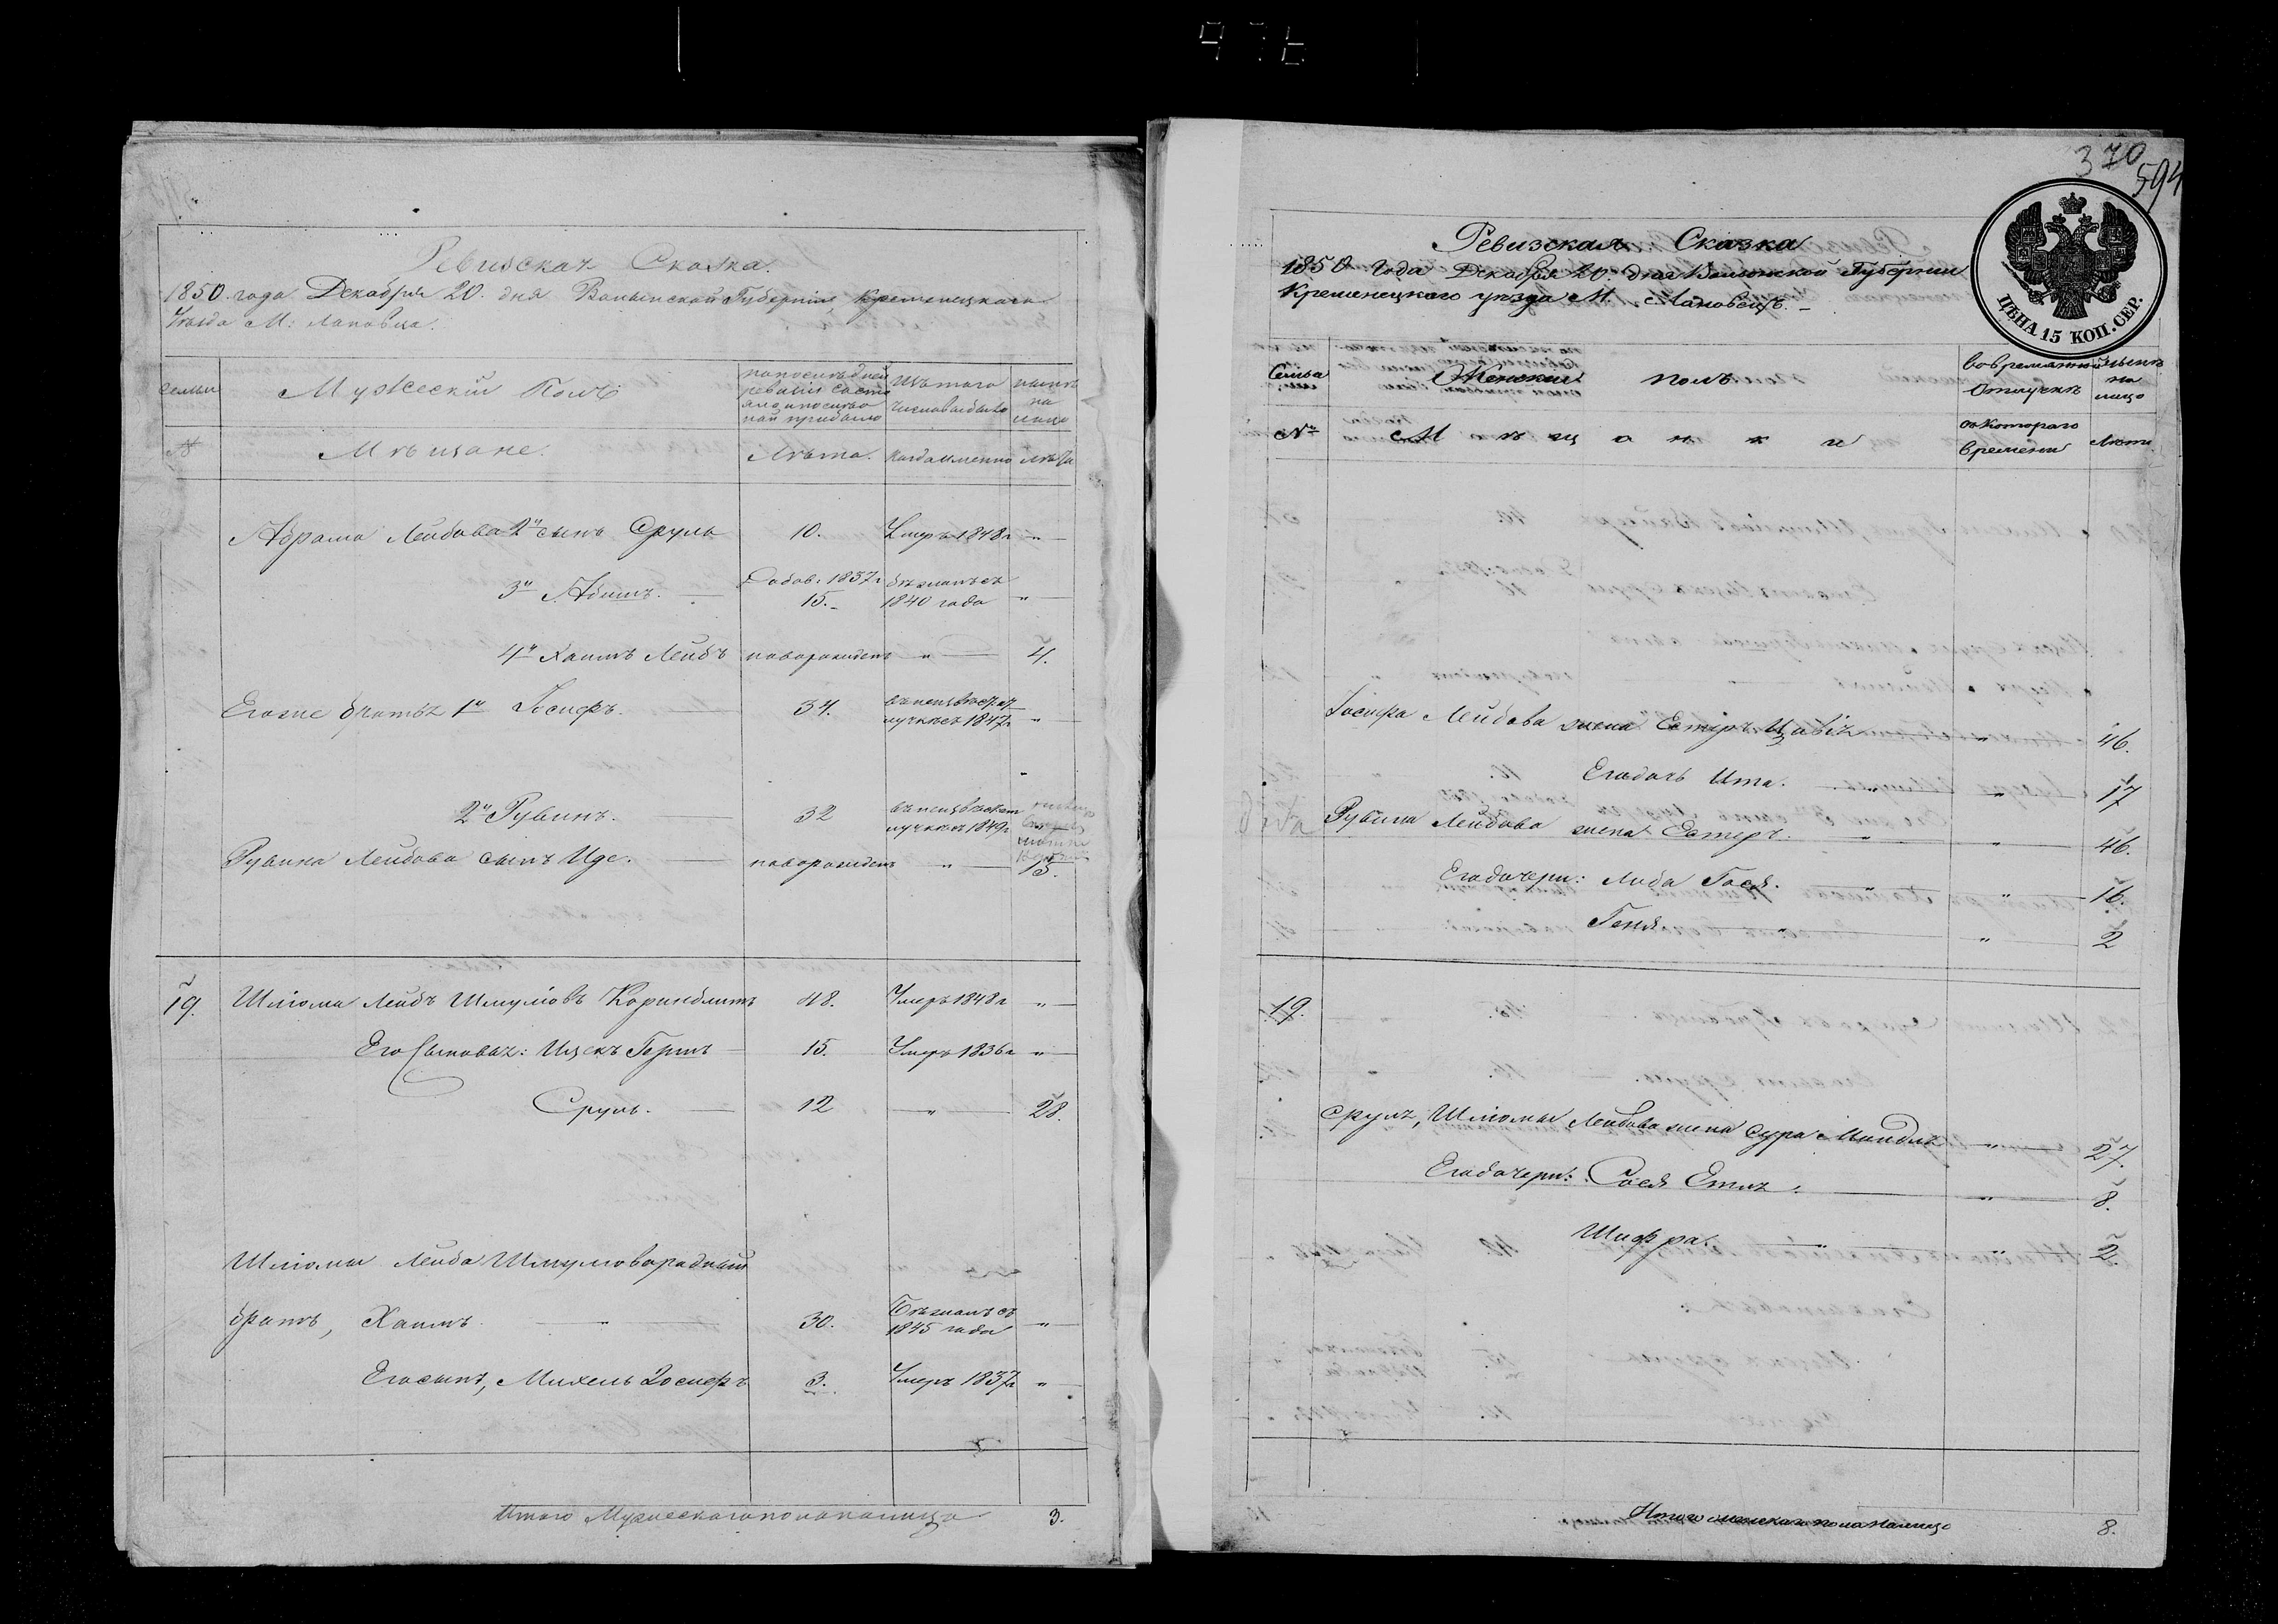 Ревизская Сказка.
1850. года Декабря 20. дня Волынской Губернии, Кременецкаго
Уезда М: Лановца.
семьи
Мужеский Полъ
по последней ревизии состояло и после оной прибыло
Изъ того числа выбыло
ныне на лицо
№
Мѣщане.
Лѣта.
Когда именно
Лѣта
Абрама Лейбова 2й сынъ Сруль 10. Умеръ 1848г "
3й Абишъ. Добав. 1837г 15. бежалъ съ 1840 года "
4й Хаимъ Лейбъ новорожденъ " 4.
Его же братья 1й Iосифъ. 34. 1847г "
2й Рувинъ. 32 1849г
Рувина Лейбова сынъ Иде. новорожденъ " 13.
19. Шлiома Лейбъ Шмулiовъ Коринблитъ 48. Умеръ 1848г "
Его Сыновья: Ицекъ Гершъ 15. Умеръ 1836г "
Сруль. 12 " 28.
Шлiомы Лейба Шмулiова родный
братъ, Хаимъ " 30. Бежалъ съ 1845 года "
Его сынъ, Михель Iосифъ 3. Умеръ 1837г "
Итого Мужескаго пола на лицо 3.
370
594
ЦѢНА 15 КОП. СЕР.
Ревизская Сказка
1850 Года Декабря 20 дня Волынской Губернии
Кременецкаго уезда М. Лановецъ.
Семья
Женский полъ
во временной отлучкѣ
Ныне на лицо
№
Мѣщанки
съ котораго времени
Лѣта
Iосифа Лейбова жена Естеръ Цивiя " 46.
Его дочь Ита. " 17
Рувина Лейбова жена Естеръ. " " 46.
Его дочери: Либа Гося. " " 16.
Геня " " 2
19.
Сруля, Шлiомы Лейбова жена Сура Миндля " 27.
Его дочери: Сося Етля. " 8.
Шифра. " " 2.
Итого женскаго пола налицо 8.